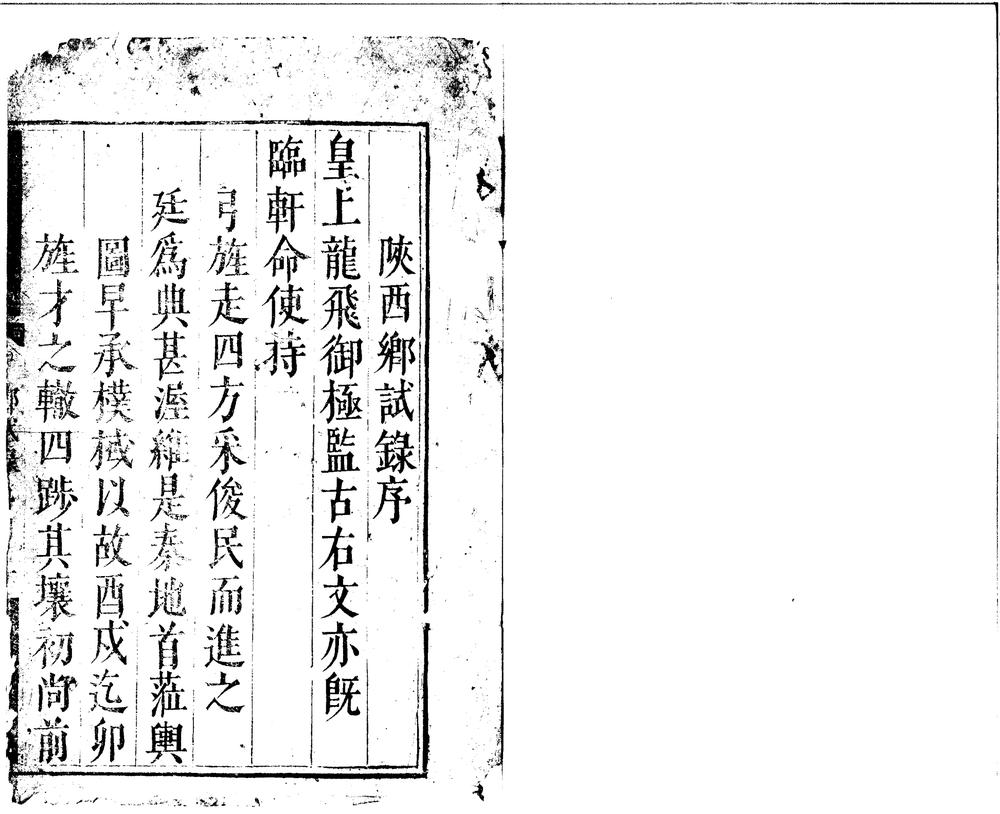 陝西鄉試錄序
皇上龍飛御極監古右文亦既
臨軒命使持
弓旌走四方采俊民而進之
廷爲典甚渥維是秦地首蒞輿
圖早承樸棫以故酉戍迄卯
旌才之轍四躋其壤初尚前